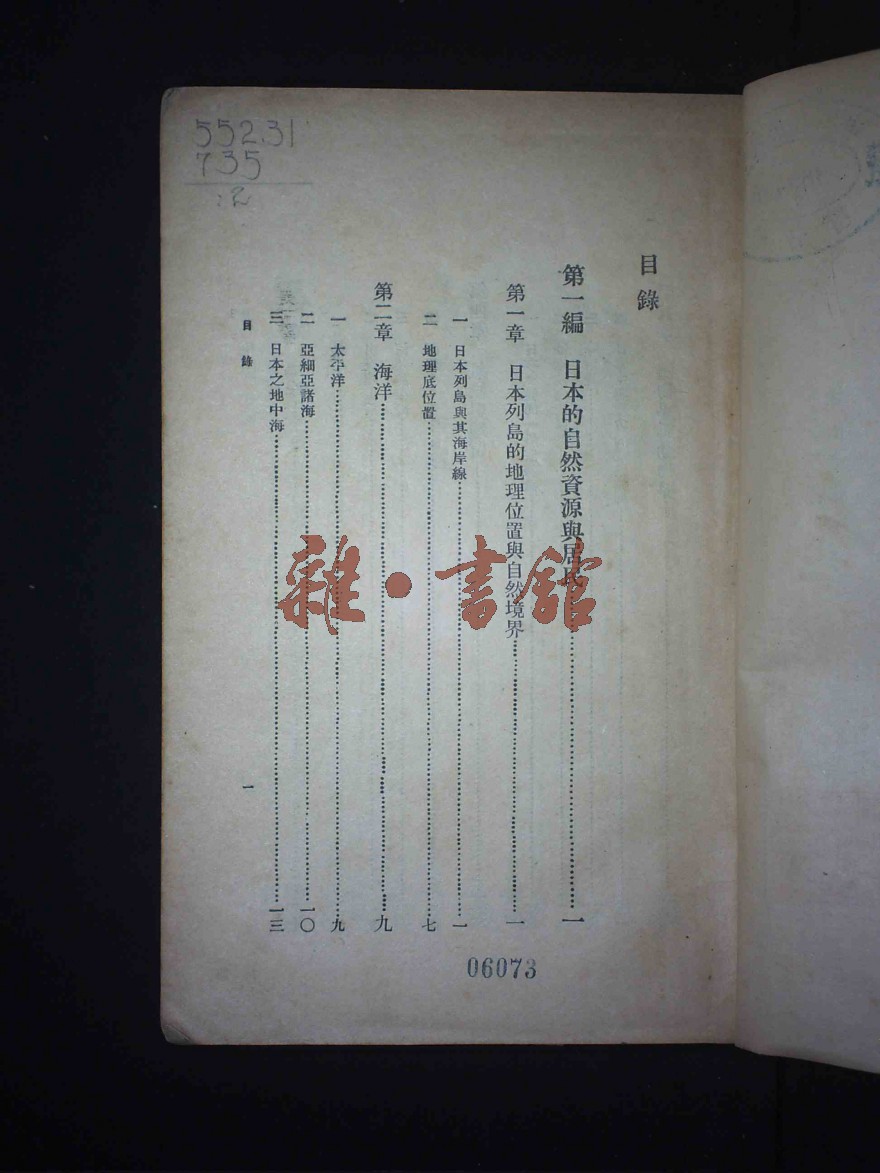 55231
735
:2
目錄
第一編 日本的自然資源與居民……一
第一章 日本列島的地理位置與自然境界……一
一 日本列島與其海岸線……一
二 地理底位置……七
第二章 海洋……九
一 太平洋……九
二 亞細亞諸海……一〇
三 日本之地中海……一三
目錄
一
06073
雜·書館